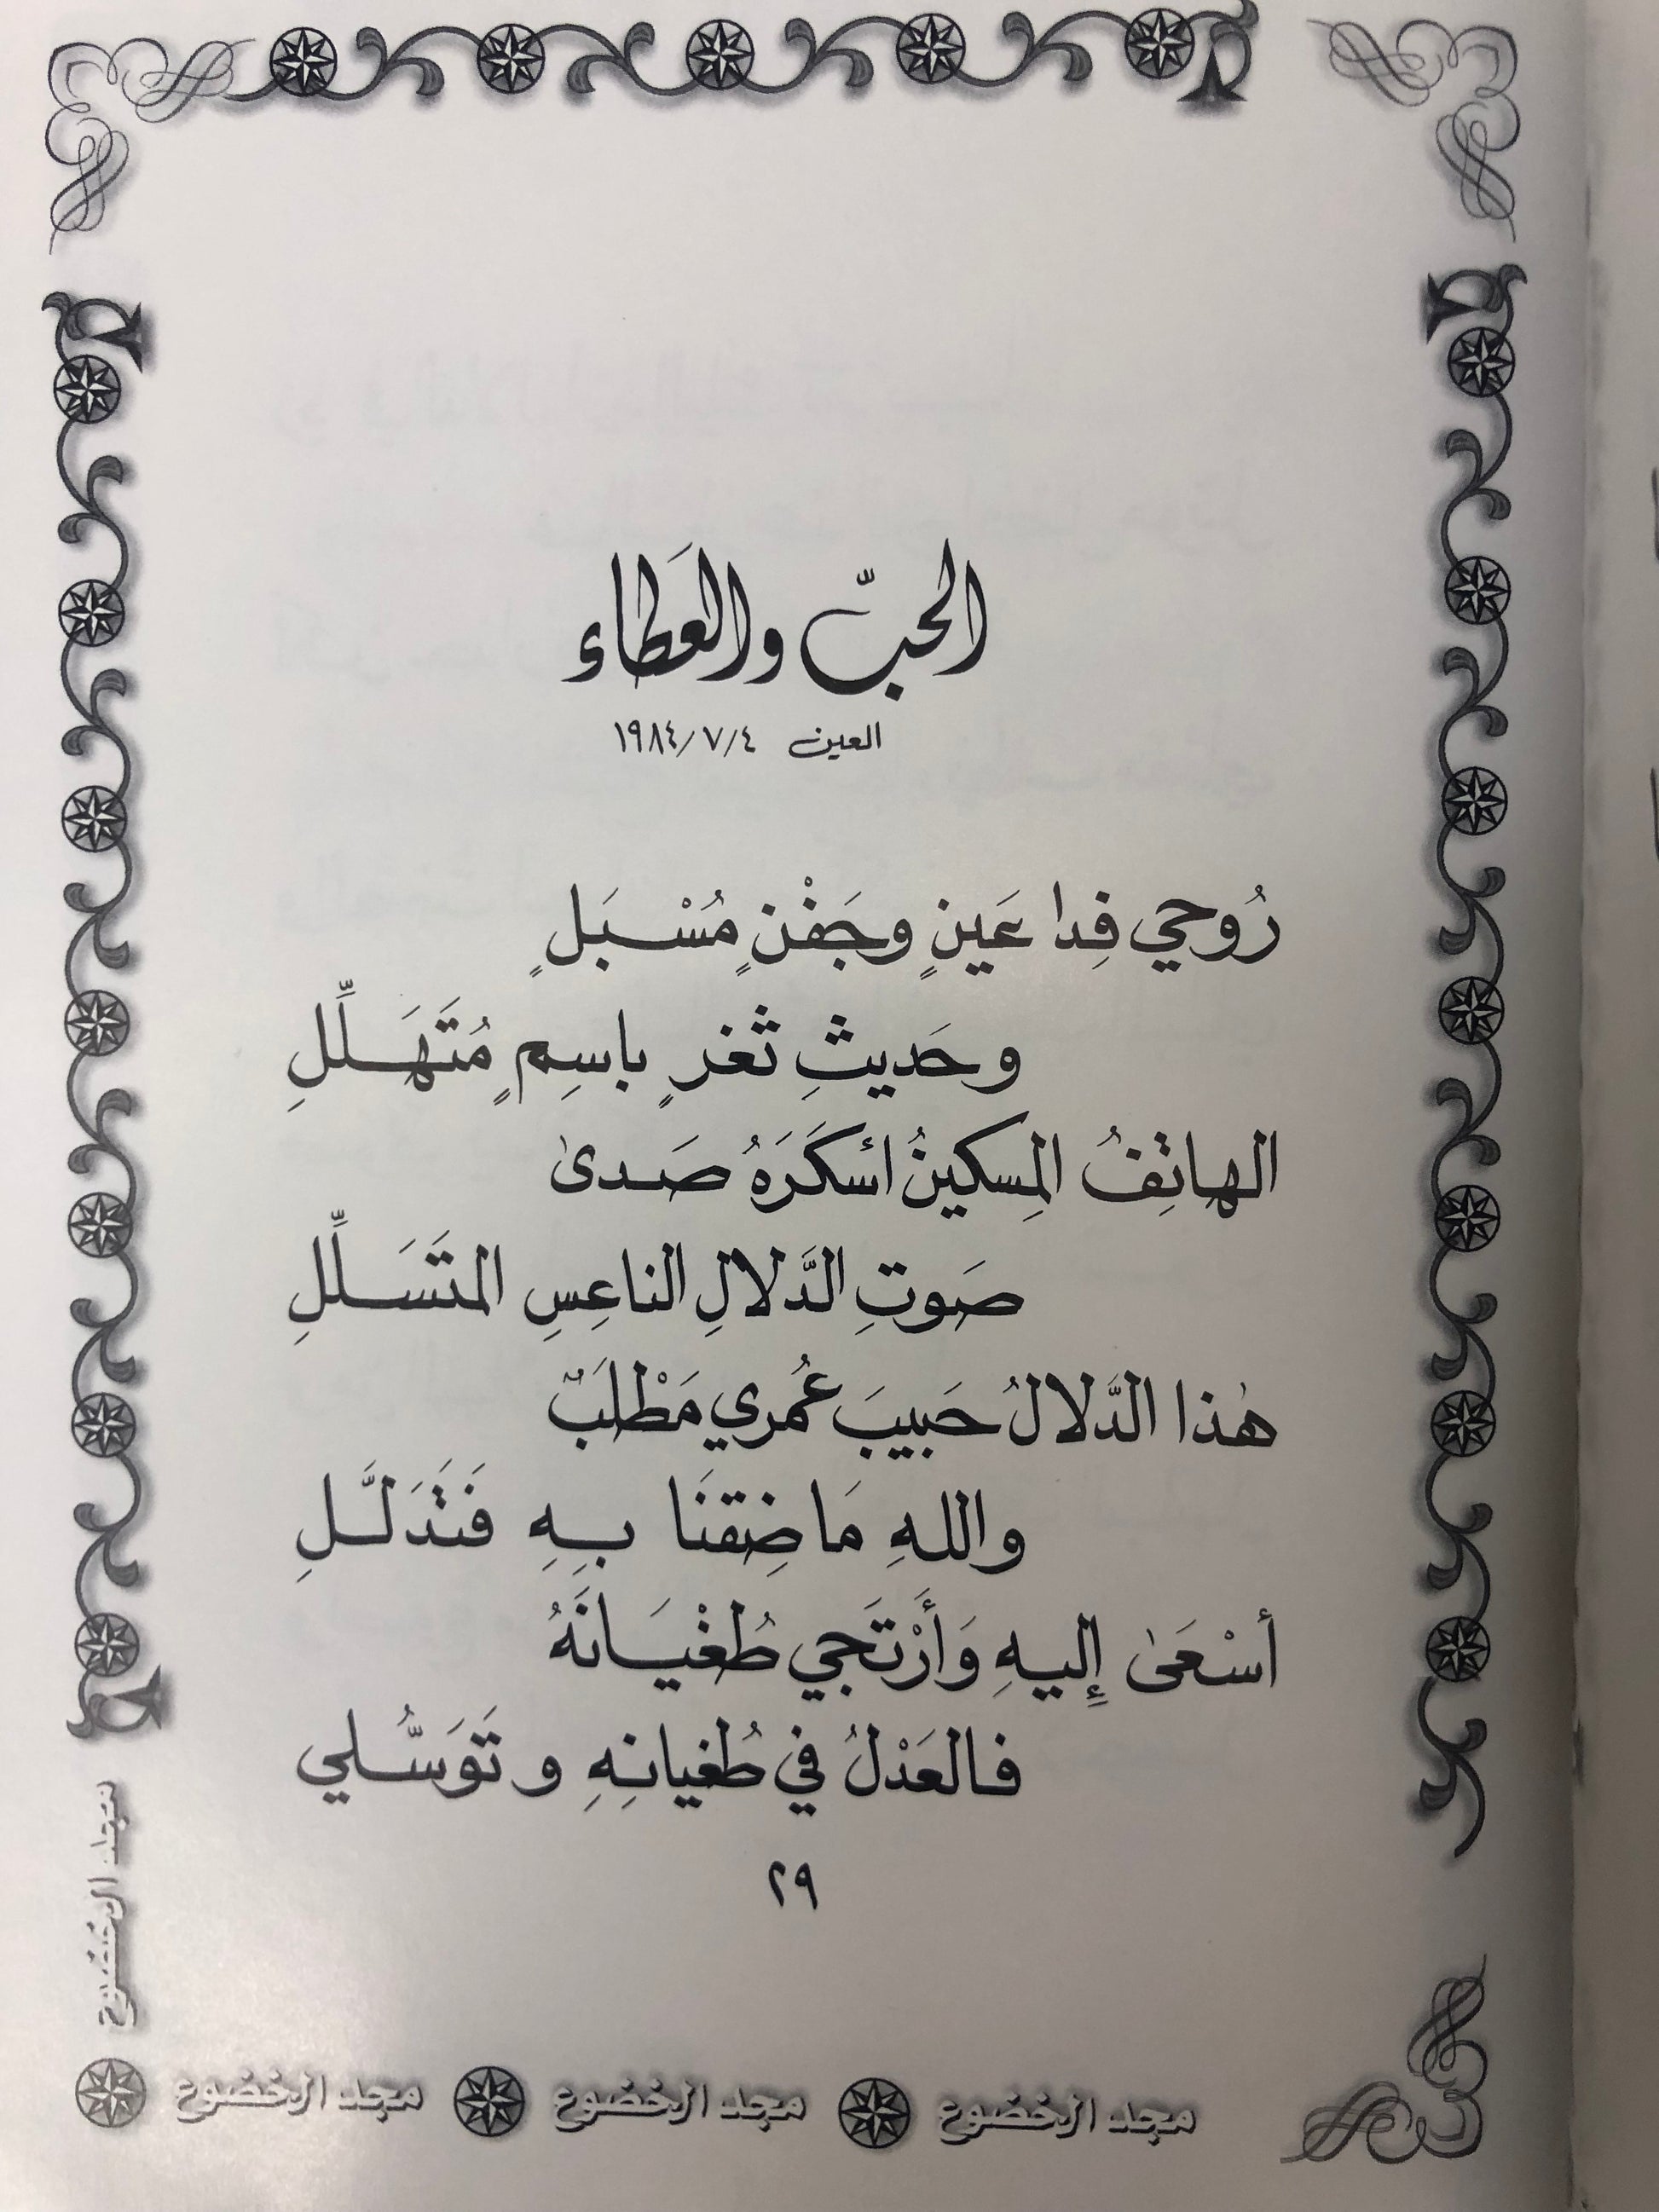 الحبّ والعَطاء
العين ١٩٨٤/٧/٤
رُوحي فِدا عَينٍ وجَفْنٍ مُسْبَلٍ
وحَديثِ ثَغرٍ باسِمٍ مُتَهَلِّلِ
الهاتِفُ المِسكينُ اسكَرَهُ صَدىٰ
صَوتِ الدَّلالِ الناعِسِ المتَسَلِّلِ
هٰذا الدَّلالُ حَبيبَ عُمري مَطْلَبٌ
واللهِ مَا ضِقنَا بِهِ فَتَدَلَّلِ
أسْعَىٰ إِليهِ وَأَرْتَجي طُغْيَانَهُ
فالعَدْلُ في طُغيانِهِ وتَوَسُّلي
٢٩
مجد الخضوع
مجد الخضوع
مجد الخضوع
مجد الخضوع